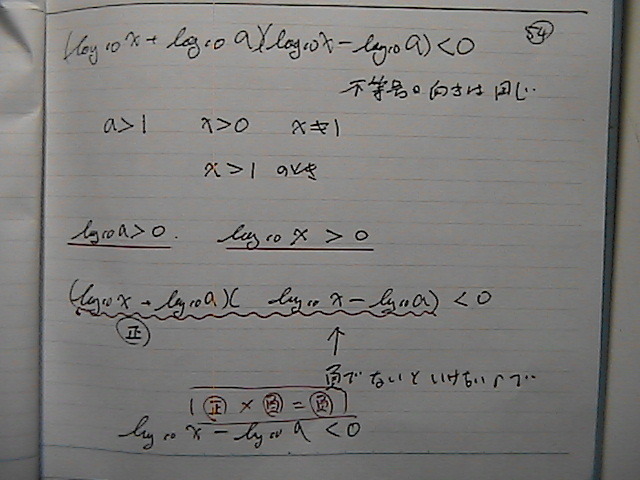 (log₁₀x + log₁₀a)(log₁₀x − log₁₀a) < 0
54
不等号の向きは同じ..
a>1 x>0 x≠1
x>1 のとき
log₁₀a>0. log₁₀x > 0
(log₁₀x + log₁₀a)( log₁₀x − log₁₀a) < 0
正
↑
負でないといけないので..
(正 × 負 = 負)
log₁₀x − log₁₀a < 0